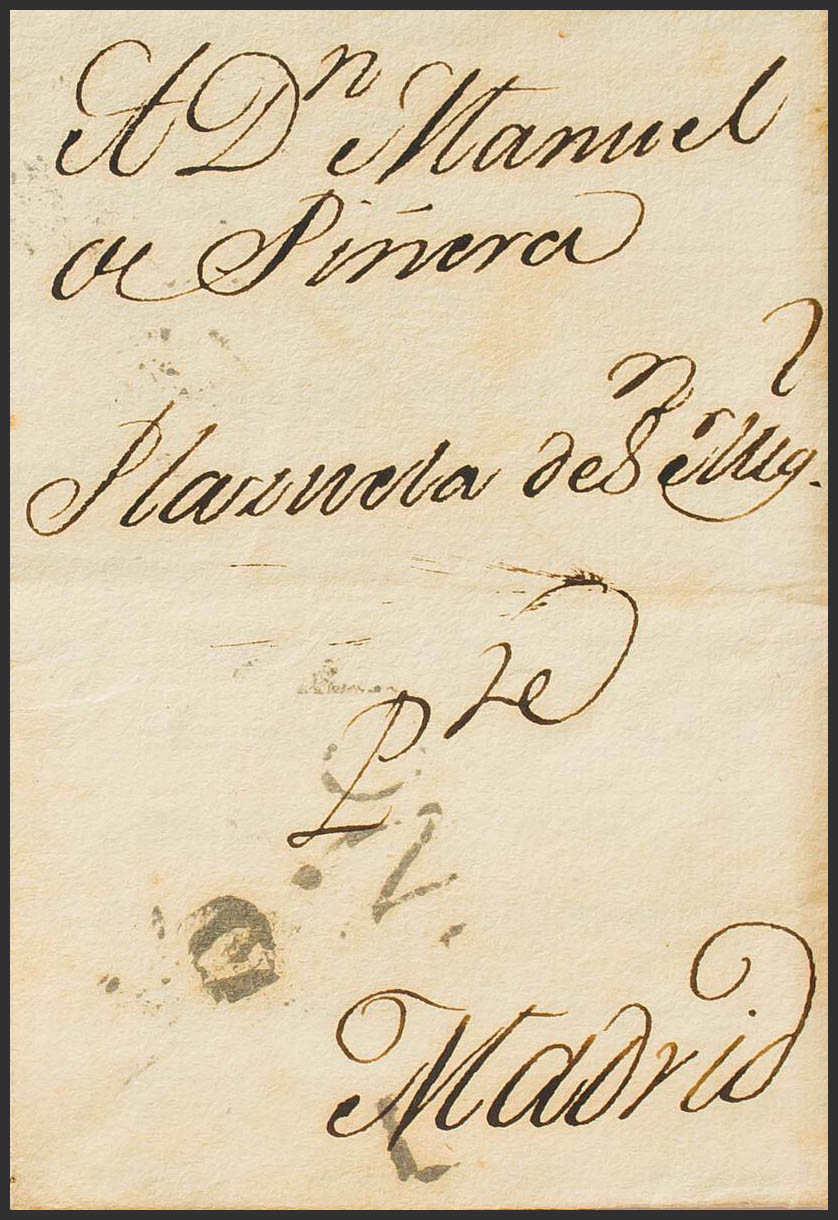 A Dn Manuel
de Piñera
Plazuela de Sn Migl.
Pte
Madrid